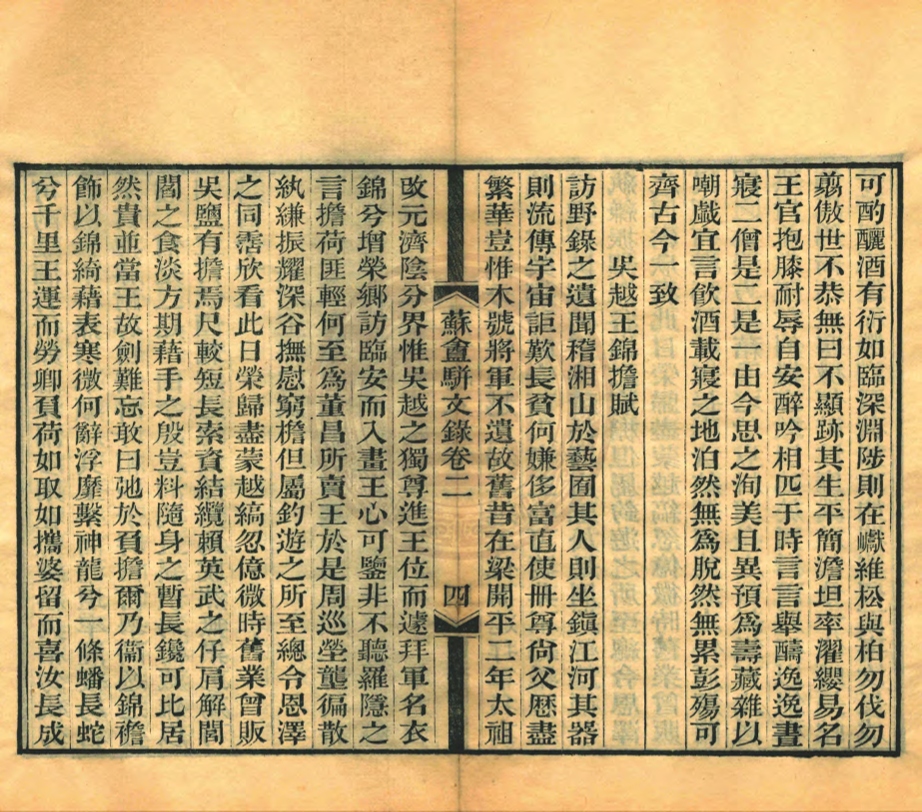 可酌釃酒有衍如臨深淵陟則在巘維松與柏勿伐勿
翦傲世不恭無曰不顯跡其生平簡澹坦率濯纓易名
王官抱膝耐辱自安醉吟相匹于時言言舉醻逸逸晝
寢二僧是二是一由今思之洵美且異預為壽藏雜以
嘲戲宜言飲酒載寢之地泊然無為脫然無累彭殤可
齊古今一致
吳越王錦擔賦
訪野錄之遺聞稽湘山於藝囿其人則坐鎮江河其器
則流傳宇宙詎歎長貧何嫌侈富直使冊尊尚父歷盡
繁華豈惟木號將軍不遺故舊昔在梁開平二年太祖
蘇盦駢文錄卷二 四
改元濟陰分界惟吳越之獨尊進王位而遽拜軍名衣
錦兮增榮鄉訪臨安而入畫王心可鑒非不聽羅隱之
言擔荷匪輕何至為董昌所賣王於是周巡塋壟徧散
執縑振耀深谷撫慰窮檐但屬釣遊之所至總令恩澤
之同霑欣看此日榮歸盡蒙越縞忽億微時舊業曾販
吳鹽有擔焉尺較短長索資結纜賴英武之仔肩解閭
閻之食淡方期藉手之殷豈料隨身之暫長鑱可比居
然貴並當王故劍難忘敢曰弛於負擔爾乃衞以錦襜
飾以錦綺藉表寒微何辭浮靡繫神龍兮一條蟠長蛇
兮千里王運而勞卿負荷如取如攜婆留而喜汝長成